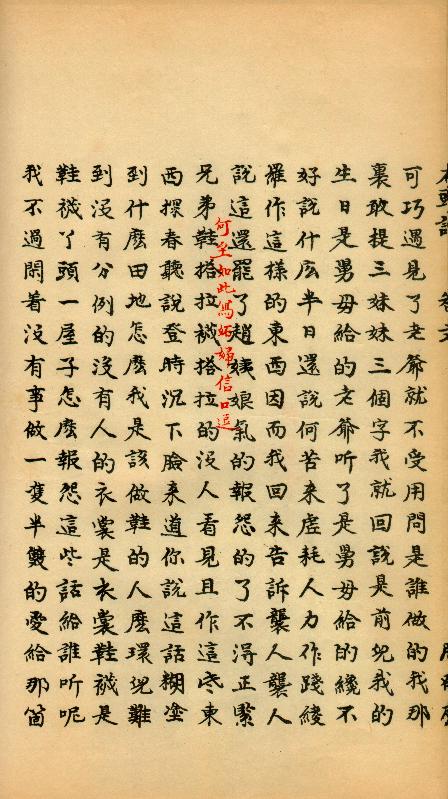 可巧遇見了老爺就不受用問是誰做的我那
裏敢提三妹妹三個字我就回說是前兒我的
生日是舅母給的老爺听了是舅母給的纔不
好說什広半日還說何苦来虚耗人力作踐綾
羅作這様的東西因而我回来告訴襲人襲人
說這還罷了趙姨娘氣的報怨的了不淂正緊
兄弟鞋搭拉襪搭拉的没人看見且作這些東
何至如此寫妬婦信口逗
西探春聽說登時沉下臉来道你說這話糊塗
到什麽田地怎麽我是該做鞋的人麽環兒難
到没有分例的没有人的衣裳是衣裳鞋襪是
鞋襪丫頭一屋子怎麽報怨這些話給誰听呢
我不過閑着没有事做一隻半雙的愛給那箇